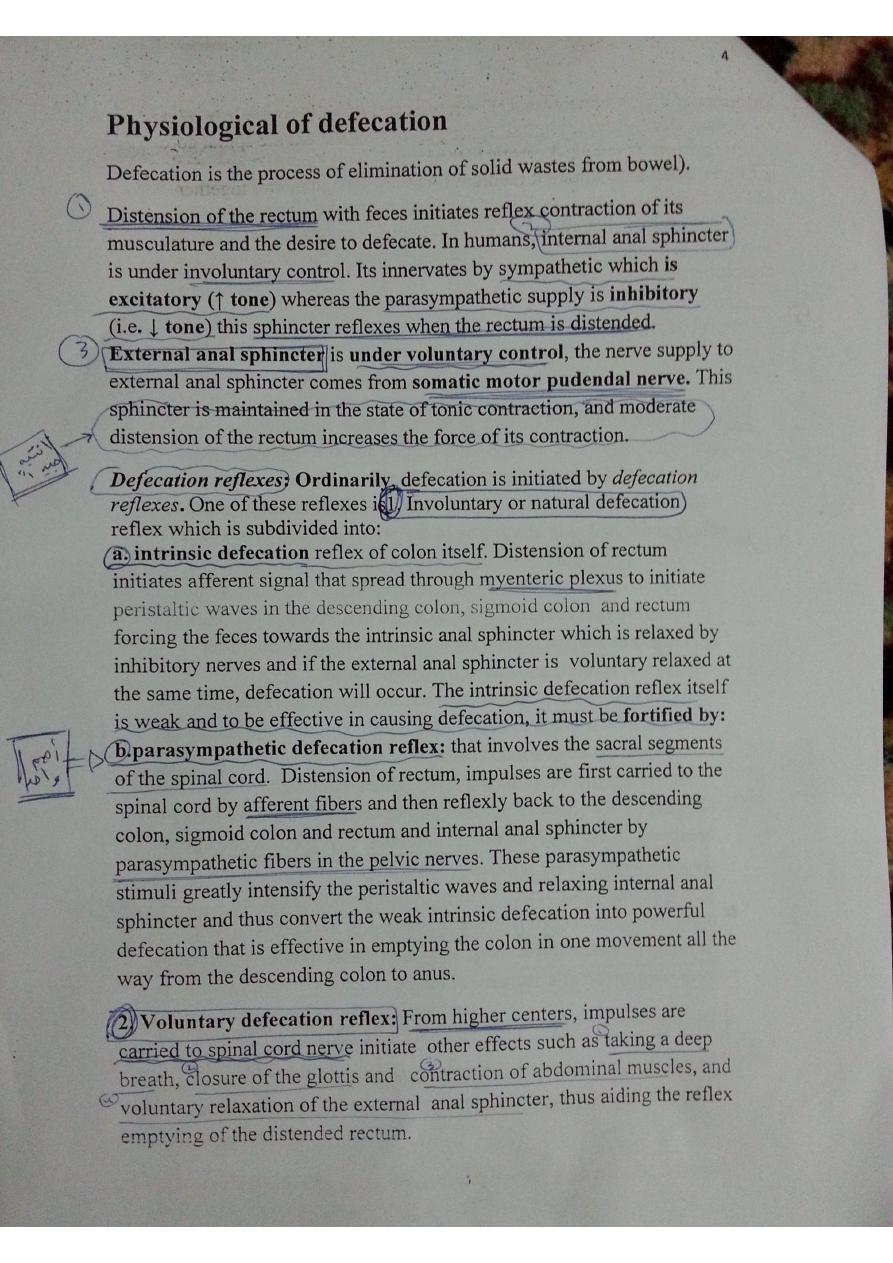 Physiological of defecation
Defecation is the process of elimination of solid wastes from bowel).
1 Distension of the rectum with feces initiates reflex contraction of its
musculature and the desire to defecate. In humans, internal anal sphincter
is under involuntary control. Its innervates by sympathetic which is
excitatory (↑ tone) whereas the parasympathetic supply is inhibitory
(i.e. ↓ tone) this sphincter reflexes when the rectum is distended.
3 External anal sphincter is under voluntary control, the nerve supply to
external anal sphincter comes from somatic motor pudendal nerve. This
sphincter is maintained in the state of tonic contraction, and moderate
distension of the rectum increases the force of its contraction.
Defecation reflexes; Ordinarily, defecation is initiated by defecation
reflexes. One of these reflexes is 1. Involuntary or natural defecation
reflex which is subdivided into:
a. intrinsic defecation reflex of colon itself. Distension of rectum
initiates afferent signal that spread through myenteric plexus to initiate
peristaltic waves in the descending colon, sigmoid colon and rectum
forcing the feces towards the intrinsic anal sphincter which is relaxed by
inhibitory nerves and if the external anal sphincter is voluntary relaxed at
the same time, defecation will occur. The intrinsic defecation reflex itself
is weak and to be effective in causing defecation, it must be fortified by:
b.parasympathetic defecation reflex: that involves the sacral segments
of the spinal cord. Distension of rectum, impulses are first carried to the
spinal cord by afferent fibers and then reflexly back to the descending
colon, sigmoid colon and rectum and internal anal sphincter by
parasympathetic fibers in the pelvic nerves. These parasympathetic
stimuli greatly intensify the peristaltic waves and relaxing internal anal
sphincter and thus convert the weak intrinsic defecation into powerful
defecation that is effective in emptying the colon in one movement all the
way from the descending colon to anus.
2. Voluntary defecation reflex: From higher centers, impulses are
carried to spinal cord nerve initiate other effects such as taking a deep
breath, closure of the glottis and contraction of abdominal muscles, and
voluntary relaxation of the external anal sphincter, thus aiding the reflex
emptying of the distended rectum.